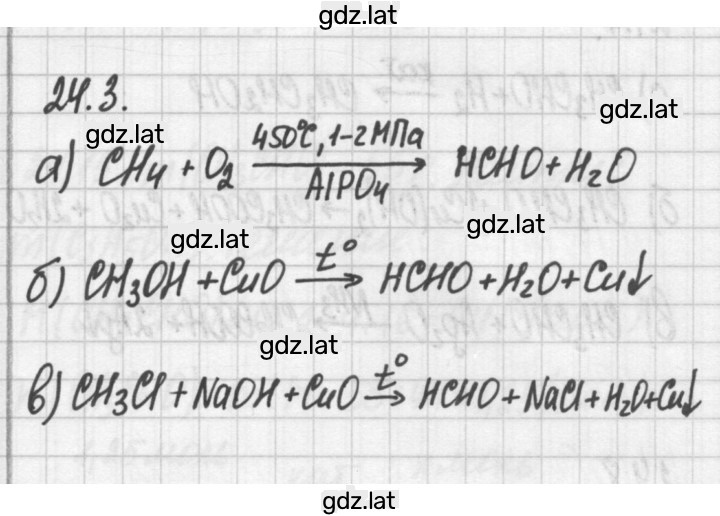 gdz.lat
24.3.
gdz.lat
gdz.lat
а) CH₄ + O₂ 450°C, 1-2 МПа → AlPO₄ HCHO + H₂O
gdz.lat
gdz.lat
б) CH₃OH + CuO t° → HCHO + H₂O + Cu↓
gdz.lat
в) CH₃Cl + NaOH + CuO t° → HCHO + NaCl + H₂O + Cu↓
gdz.lat